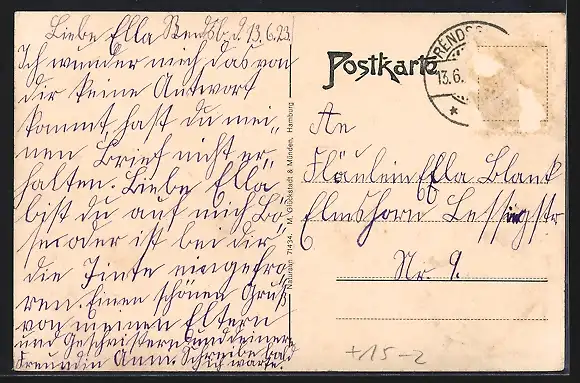 Liebe Ella Rendsb. d. 13.6.23.
Ich wunder mich das von
dir keine Antwort
kommt, hast du mei=
nen Brief nicht er=
halten. Liebe Ella
bist du auf mich Bö=
se oder ist bei dir
die Tinte eingefro=
ren. Einen schönen Gruß
von meinen Eltern
und Geschwistern und deiner
Freundin Anni. Schreibe bald
Ich warte.
Naturaan 71434. M. Glückstadt & Münden, Hamburg
Postkarte
RENDSB
13.6.
An
Fräulein Ella Blank
Elmshorn Lessingstr
Nr. 9.
+15-2